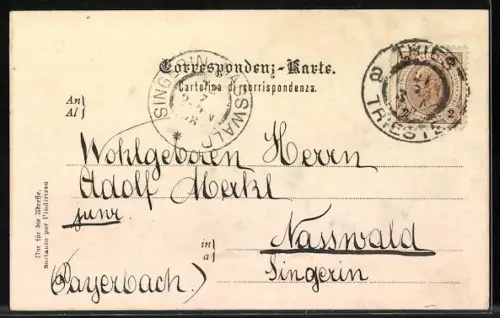 Correspondenz-Karte.
Cartolina di corrispondenza.
SINGERIN NASSWALD
TRIEST
TRIESTE
2
An
Al
Wohlgeboren Herrn
Adolf Merkl
junr.
in
a
Nasswald
(Payerbach.)
Singerin
Nur für die Adresse.
Soltanto per l'indirizzo